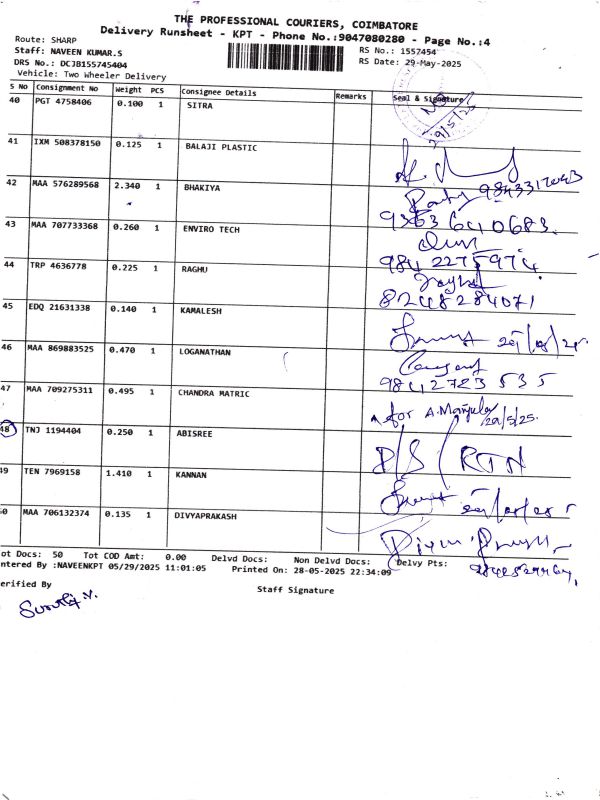 THE PROFESSIONAL COURIERS, COIMBATORE
Delivery Runsheet - KPT - Phone No.:9047080280 - Page No.:4
Route: SHARP
Staff: NAVEEN KUMAR.S
RS No.: 1557454
DRS No.: DCJB155745404
RS Date: 29-May-2025
Vehicle: Two Wheeler Delivery
S No Consignment No Weight PCS Consignee Details Remarks Seal & Signature
40 PGT 4758406 0.100 1 SITRA
29/5/25
41 IXM 508378150 0.125 1 BALAJI PLASTIC
42 MAA 576289568 2.340 1 BHAKIYA
9363640683.
43 MAA 707733368 0.260 1 ENVIRO TECH
9842275974
44 TRP 4636778 0.225 1 RAGHU
8248284071
45 EDQ 21631338 0.140 1 KAMALESH
46 MAA 869883525 0.470 1 LOGANATHAN
9842723535
47 MAA 709275311 0.495 1 CHANDRA MATRIC
for A.Manjula
29/5/25.
48 TNJ 1194404 0.250 1 ABISREE
D/S / RTN
49 TEN 7969158 1.410 1 KANNAN
50 MAA 706132374 0.135 1 DIVYAPRAKASH
ot Docs: 50 Tot COD Amt: 0.00 Delvd Docs: Non Delvd Docs: Delvy Pts:
ntered By :NAVEENKPT 05/29/2025 11:01:05 Printed On: 28-05-2025 22:34:09
erified By
Staff Signature